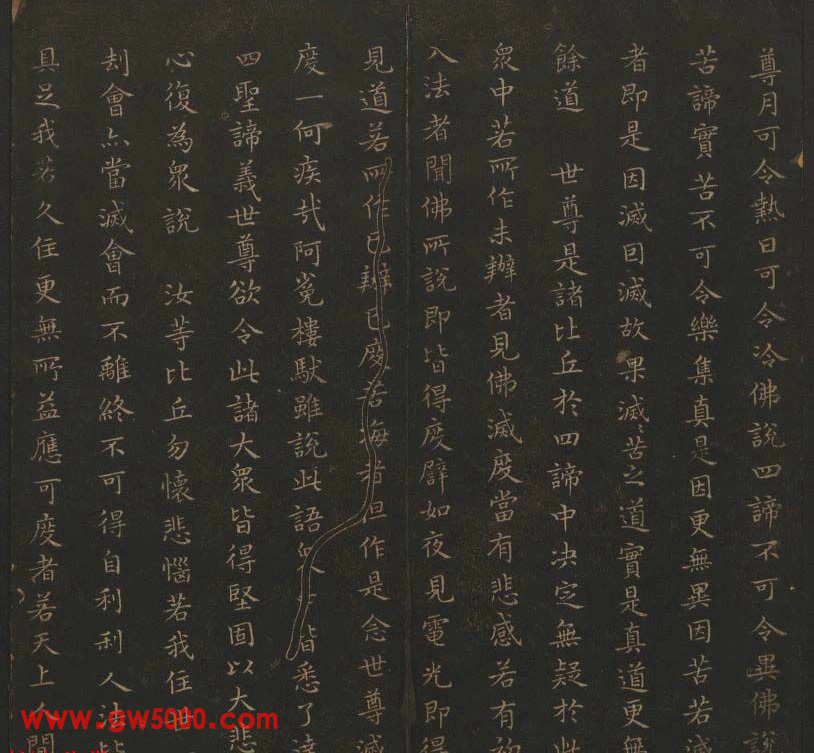 尊月可令熱日可令冷佛說四諦不可令異佛說
苦諦實苦不可令樂集真是因更無異因苦若滅
者即是因滅因滅故果滅滅苦之道實是真道更無
餘道　世尊是諸比丘於四諦中决定無疑於此
衆中若所作未辦者見佛滅度當有悲感若有初
入法者聞佛所說即皆得度譬如夜見電光即得
見道若所作已辦已度苦海者但作是念世尊滅
度一何疾㢤阿㝹樓馱雖說此語衆皆悉了達
四聖諦義世尊欲令此諸大衆皆得堅固以大悲
心復為衆說　汝等比丘勿懷悲惱若我住世
刦會亦當滅會而不離終不可得自利利人法皆
具足我若久住更無所益應可度者若天上人間
www.gw5000.com